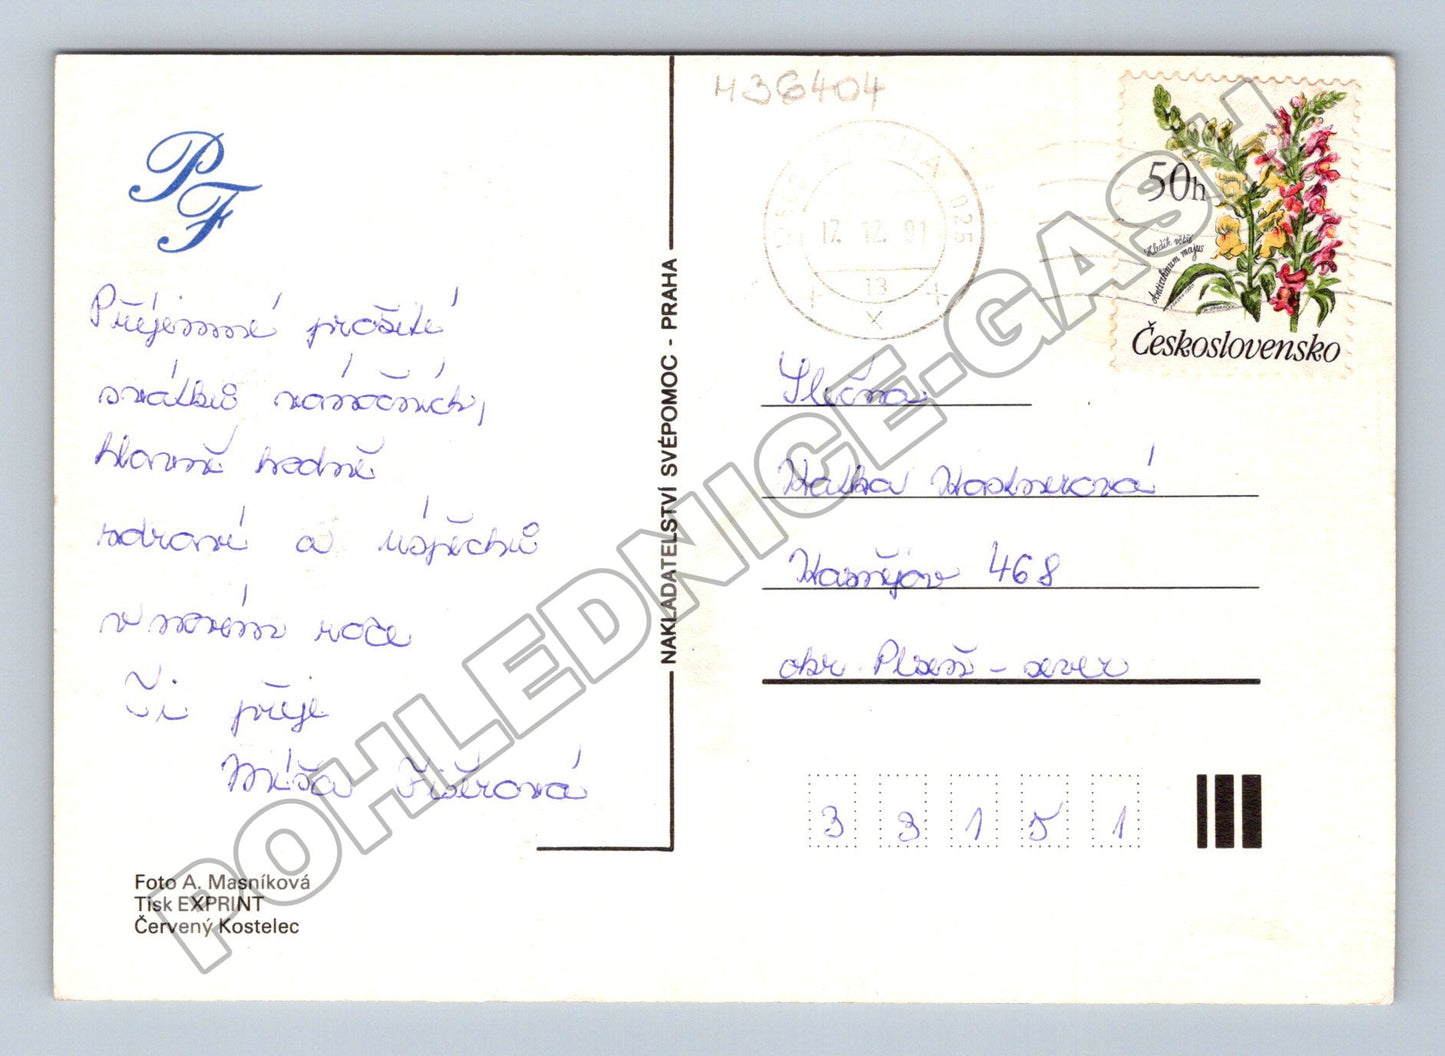 PF
Příjemné prožití
svátků vánočních,
hlavně hodně
zdraví a úspěchů
v novém roce
Ti přeje
Míša
Foto A. Masníková
Tisk EXPRINT
Červený Kostelec
NAKLADATELSTVÍ SVÉPOMOC - PRAHA
H36404
PRAHA 025
17.12.91
13
X
50h
Hledík větší
Antirrhinum majus
Československo
Slečna
Katka
Kaznějov 468
okr. Plzeň - sever
33151
POHLEDNICE-GASH